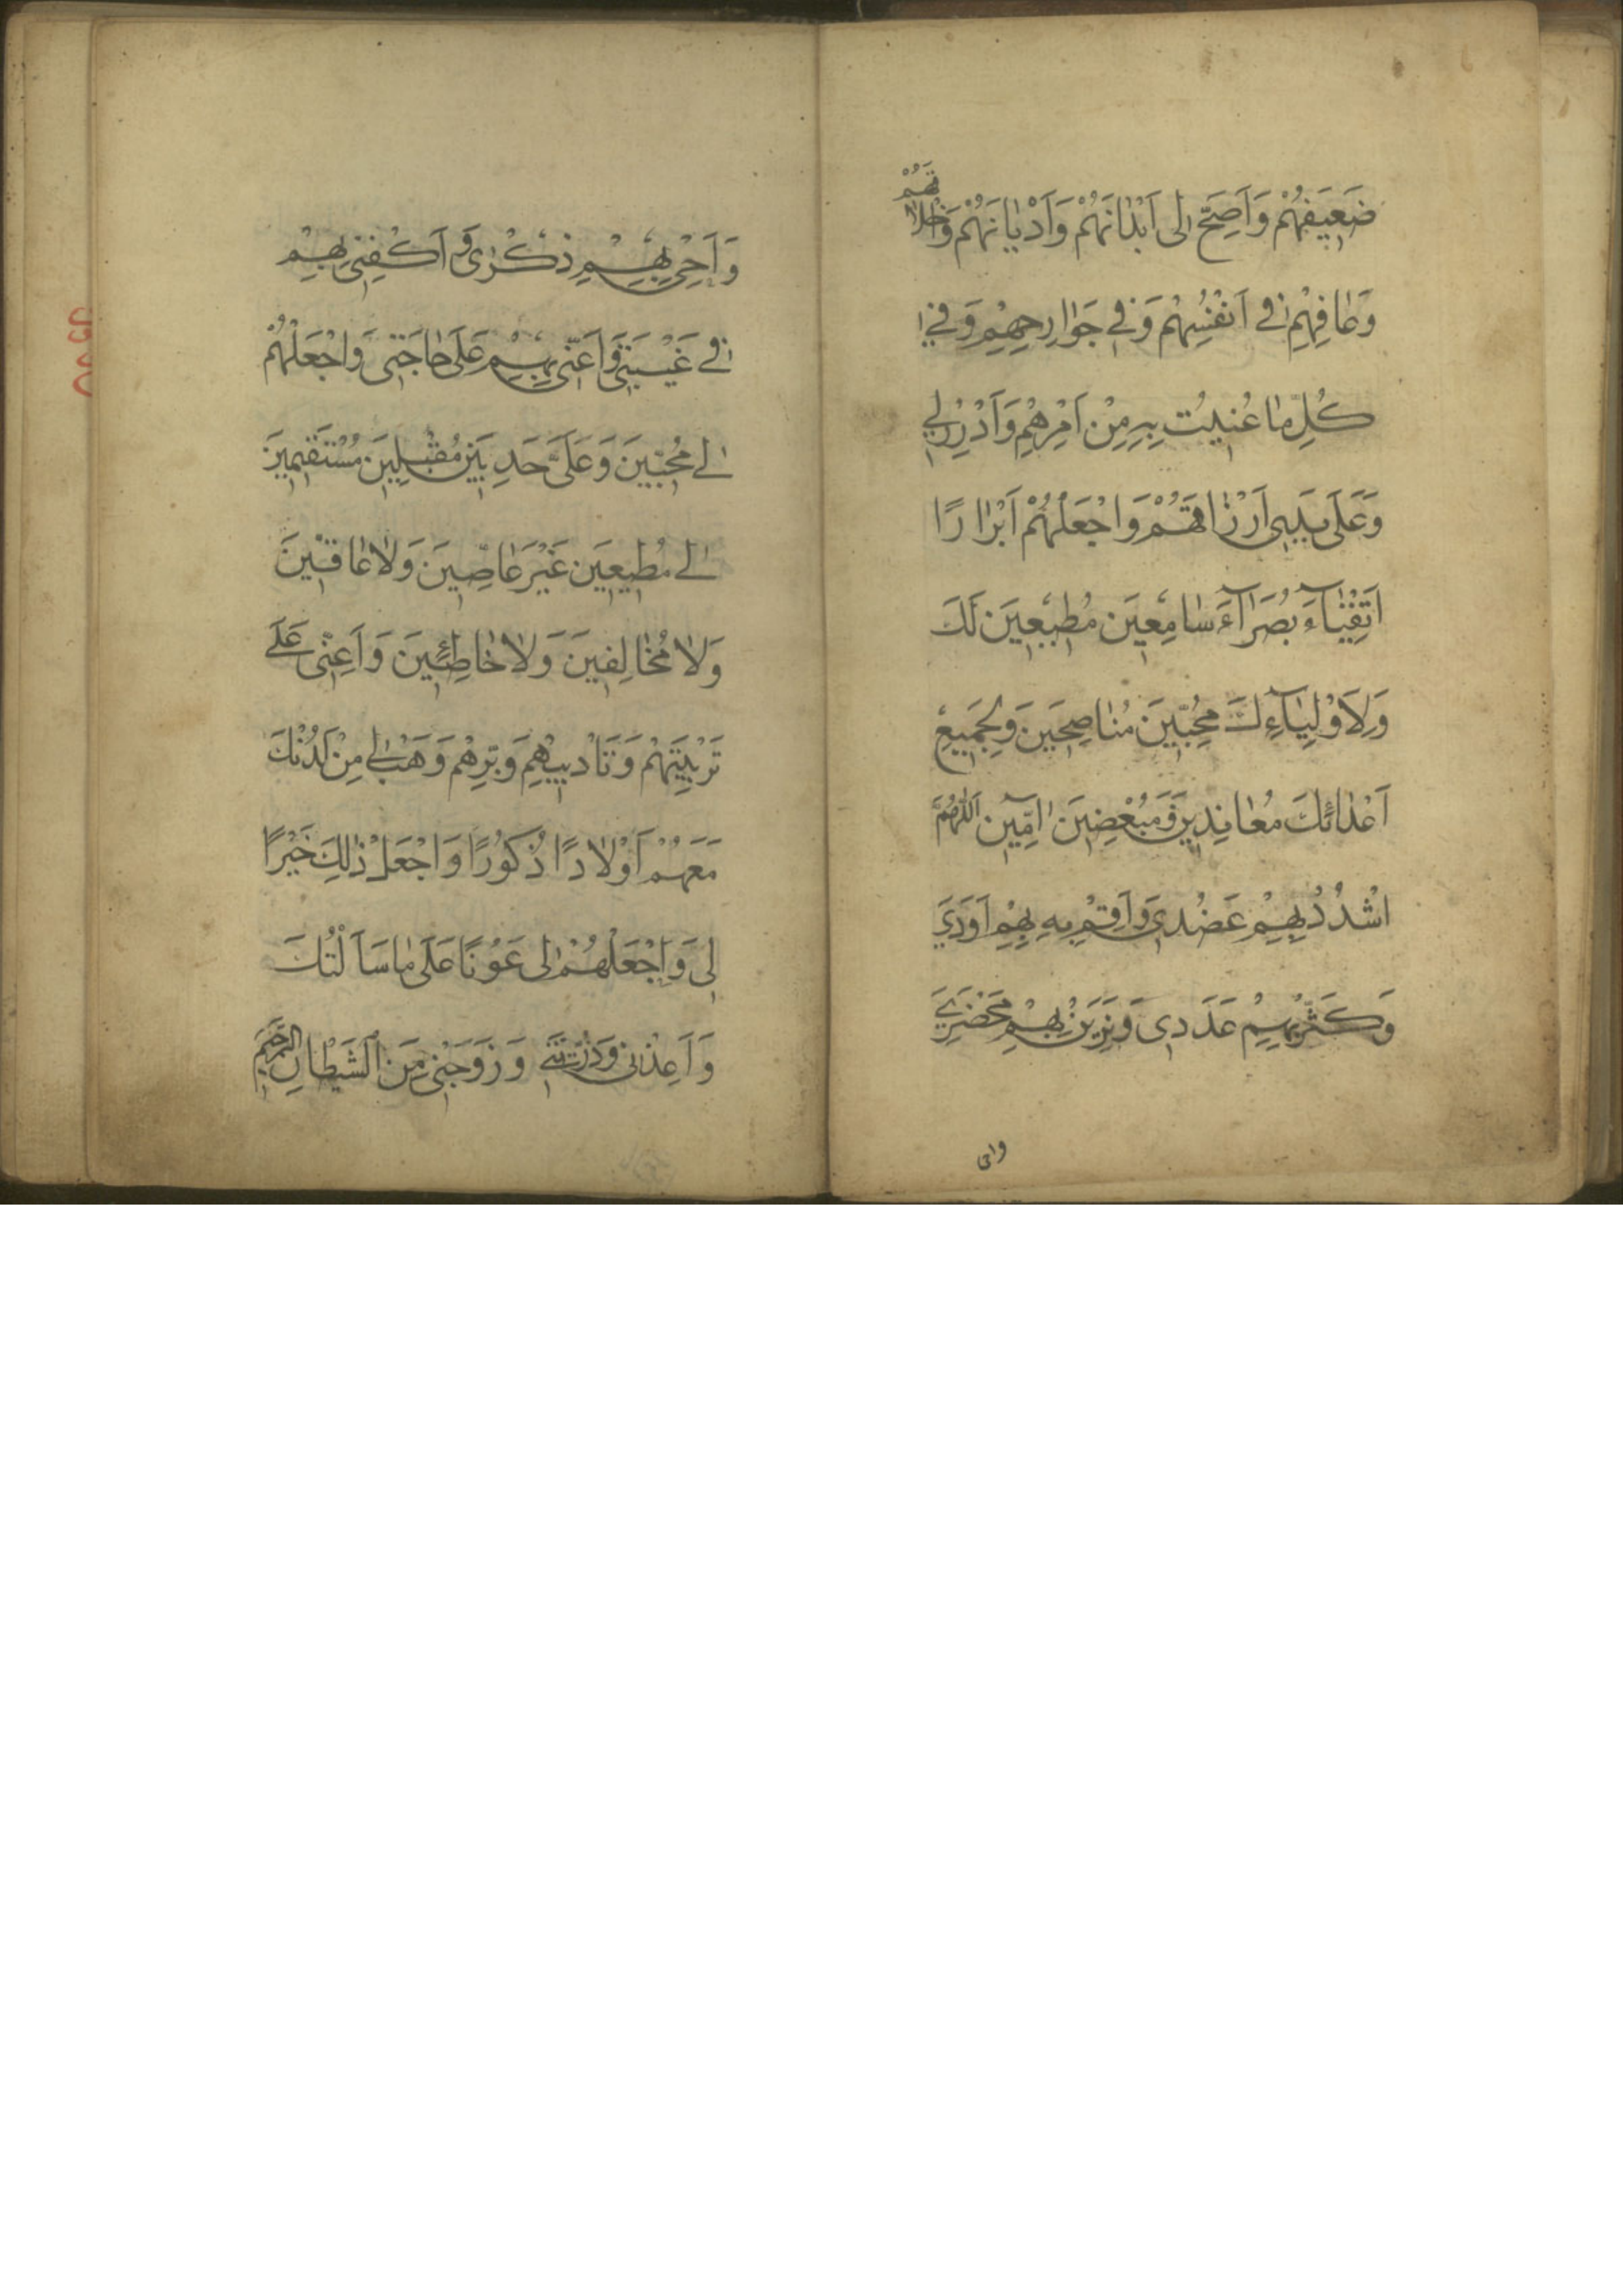 ضَعِيفَهُمْ وَاَصِحَّ لى اَبْدٰانَهُمْ وَاَدْيٰانَهُمْ وَاَخْلاٰقَهُمْ
وَعٰافِهِمْ فى اَنْفُسِهِمْ وَفي جَوٰارِحِهِمْ وَفي
كُلِّ مٰا عُنيتُ بِهِ مِنْ اَمْرِهِمْ وَاَدْرِرْ لي
وَعَلَى يَدِى اَرْزٰاقَهُمْ وَاجْعَلْهُمْ اَبْرٰارًا
اَتْقِيٰآءَ بُصَرٰآءَ سٰامِعينَ مُطيعينَ لَكَ
وَلِاَوْلِيٰآءِكَ مُحِبّينَ مُنٰاصِحينَ وَلِجَميعِ
اَعْدٰائِكَ مُعٰانِدينَ وَمُبْغِضينَ اٰمّينَ اَللّٰهُمَّ
اشْدُدْ بِهِمْ عَضُدى وَاَقِمْ بِهِمْ اَوَدي
وَكَثِّرْ بِهِمْ عَدَدى وَزَيِّنْ بِهِمْ مَحْضَري
واحى
وَاَحْىِ بِهِمْ ذِكْرٰى وَاكْفِنى بِهِمْ
فى غَيْبَتى وَاَعِنّى بِهِمْ عَلَى حٰاجَتى وَاجْعَلْهُمْ
لى مُحِبّينَ وَعَلَىَّ حَدِبينَ مُقْبِلينَ مُسْتَقيمينَ
لى مُطيعينَ غَيْرَ عٰاصينَ وَلاٰ عٰاقّينَ
وَلاٰ مُخٰالِفينَ وَلاٰ خٰاطِئينَ وَاَعِنّى عَلَى
تَرْبِيَتِهِمْ وَتَاْديبِهِمْ وَبِرِّهِمْ وَهَبْ لى مِنْ لَدُنْكَ
مَعَهُمْ اَوْلاٰدًا ذُكُورًا وَاجْعَلْ ذٰلِكَ خَيْرًا
لى وَاجْعَلْهُمْ لى عَوْنًا عَلَى مٰا سَاَلْتُكَ
وَاَعِذْنى وَذُرِّيَّتى وَزَوَجَتى مِنَ الشَّيْطٰانِ الرَّجيمِ